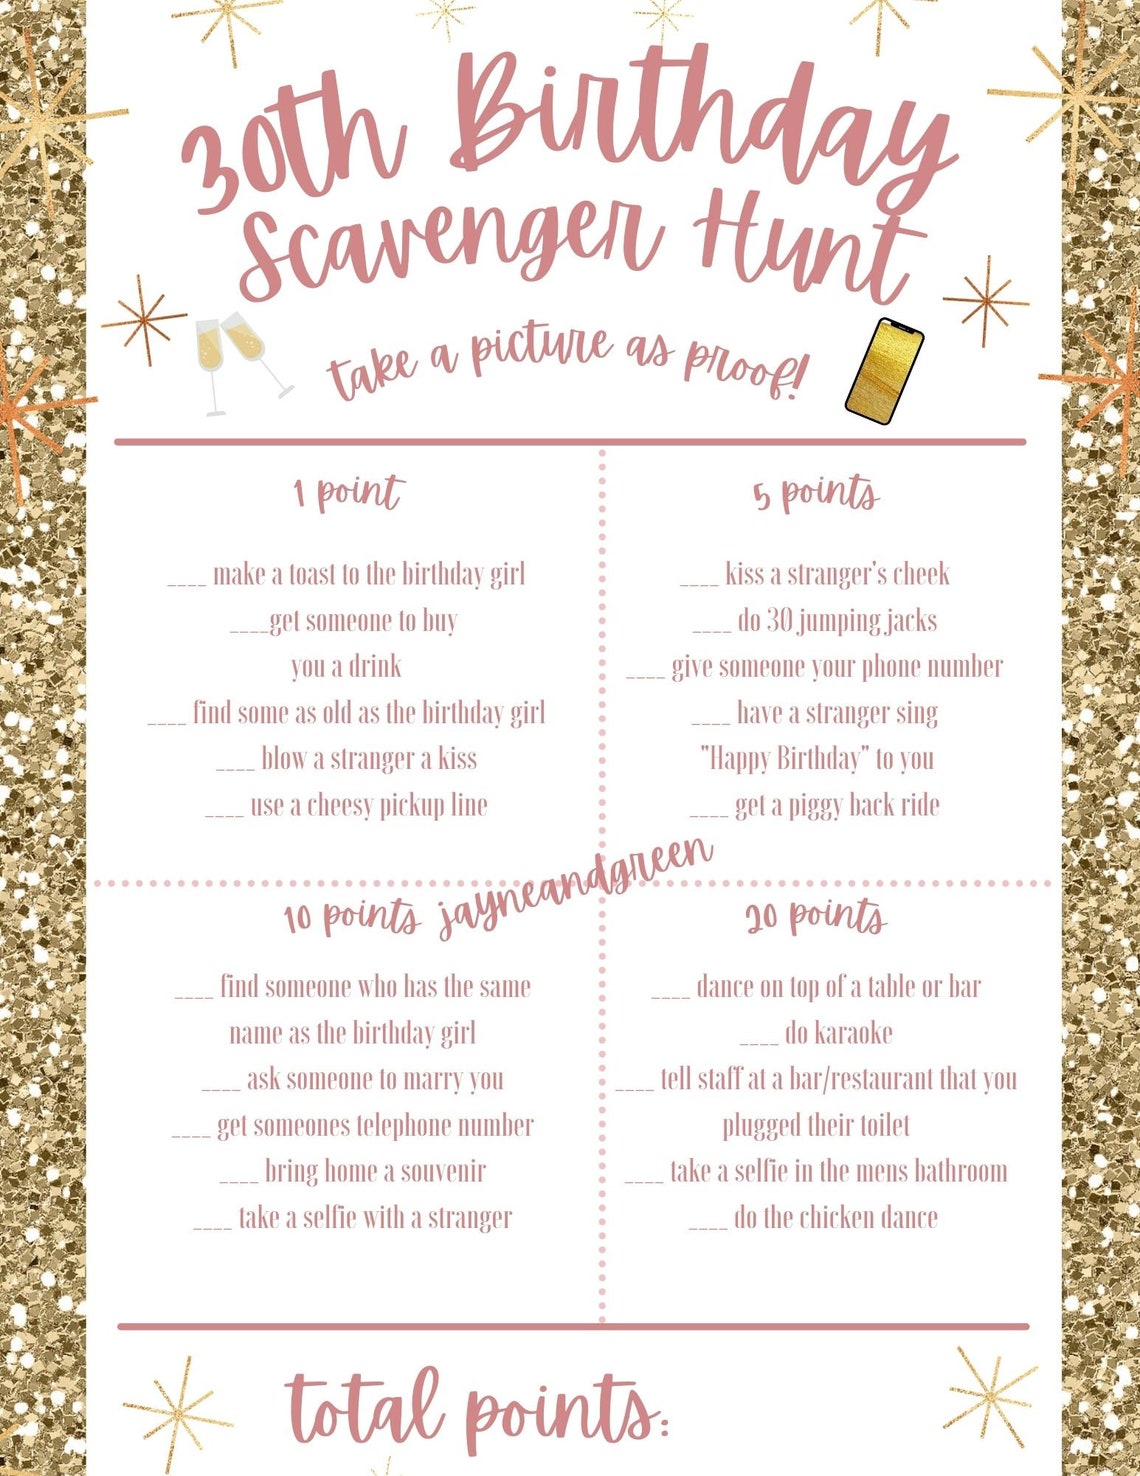 30th Birthday
Scavenger Hunt
take a picture as proof!
1 point
____ make a toast to the birthday girl
____get someone to buy
you a drink
____ find some as old as the birthday girl
____ blow a stranger a kiss
____ use a cheesy pickup line
5 points
____ kiss a stranger's cheek
____ do 30 jumping jacks
____ give someone your phone number
____ have a stranger sing
"Happy Birthday" to you
____ get a piggy back ride
jayneandgreen
10 points
____ find someone who has the same
name as the birthday girl
____ ask someone to marry you
____ get someones telephone number
____ bring home a souvenir
____ take a selfie with a stranger
20 points
____ dance on top of a table or bar
____ do karaoke
____ tell staff at a bar/restaurant that you
plugged their toilet
____ take a selfie in the mens bathroom
____ do the chicken dance
total points: